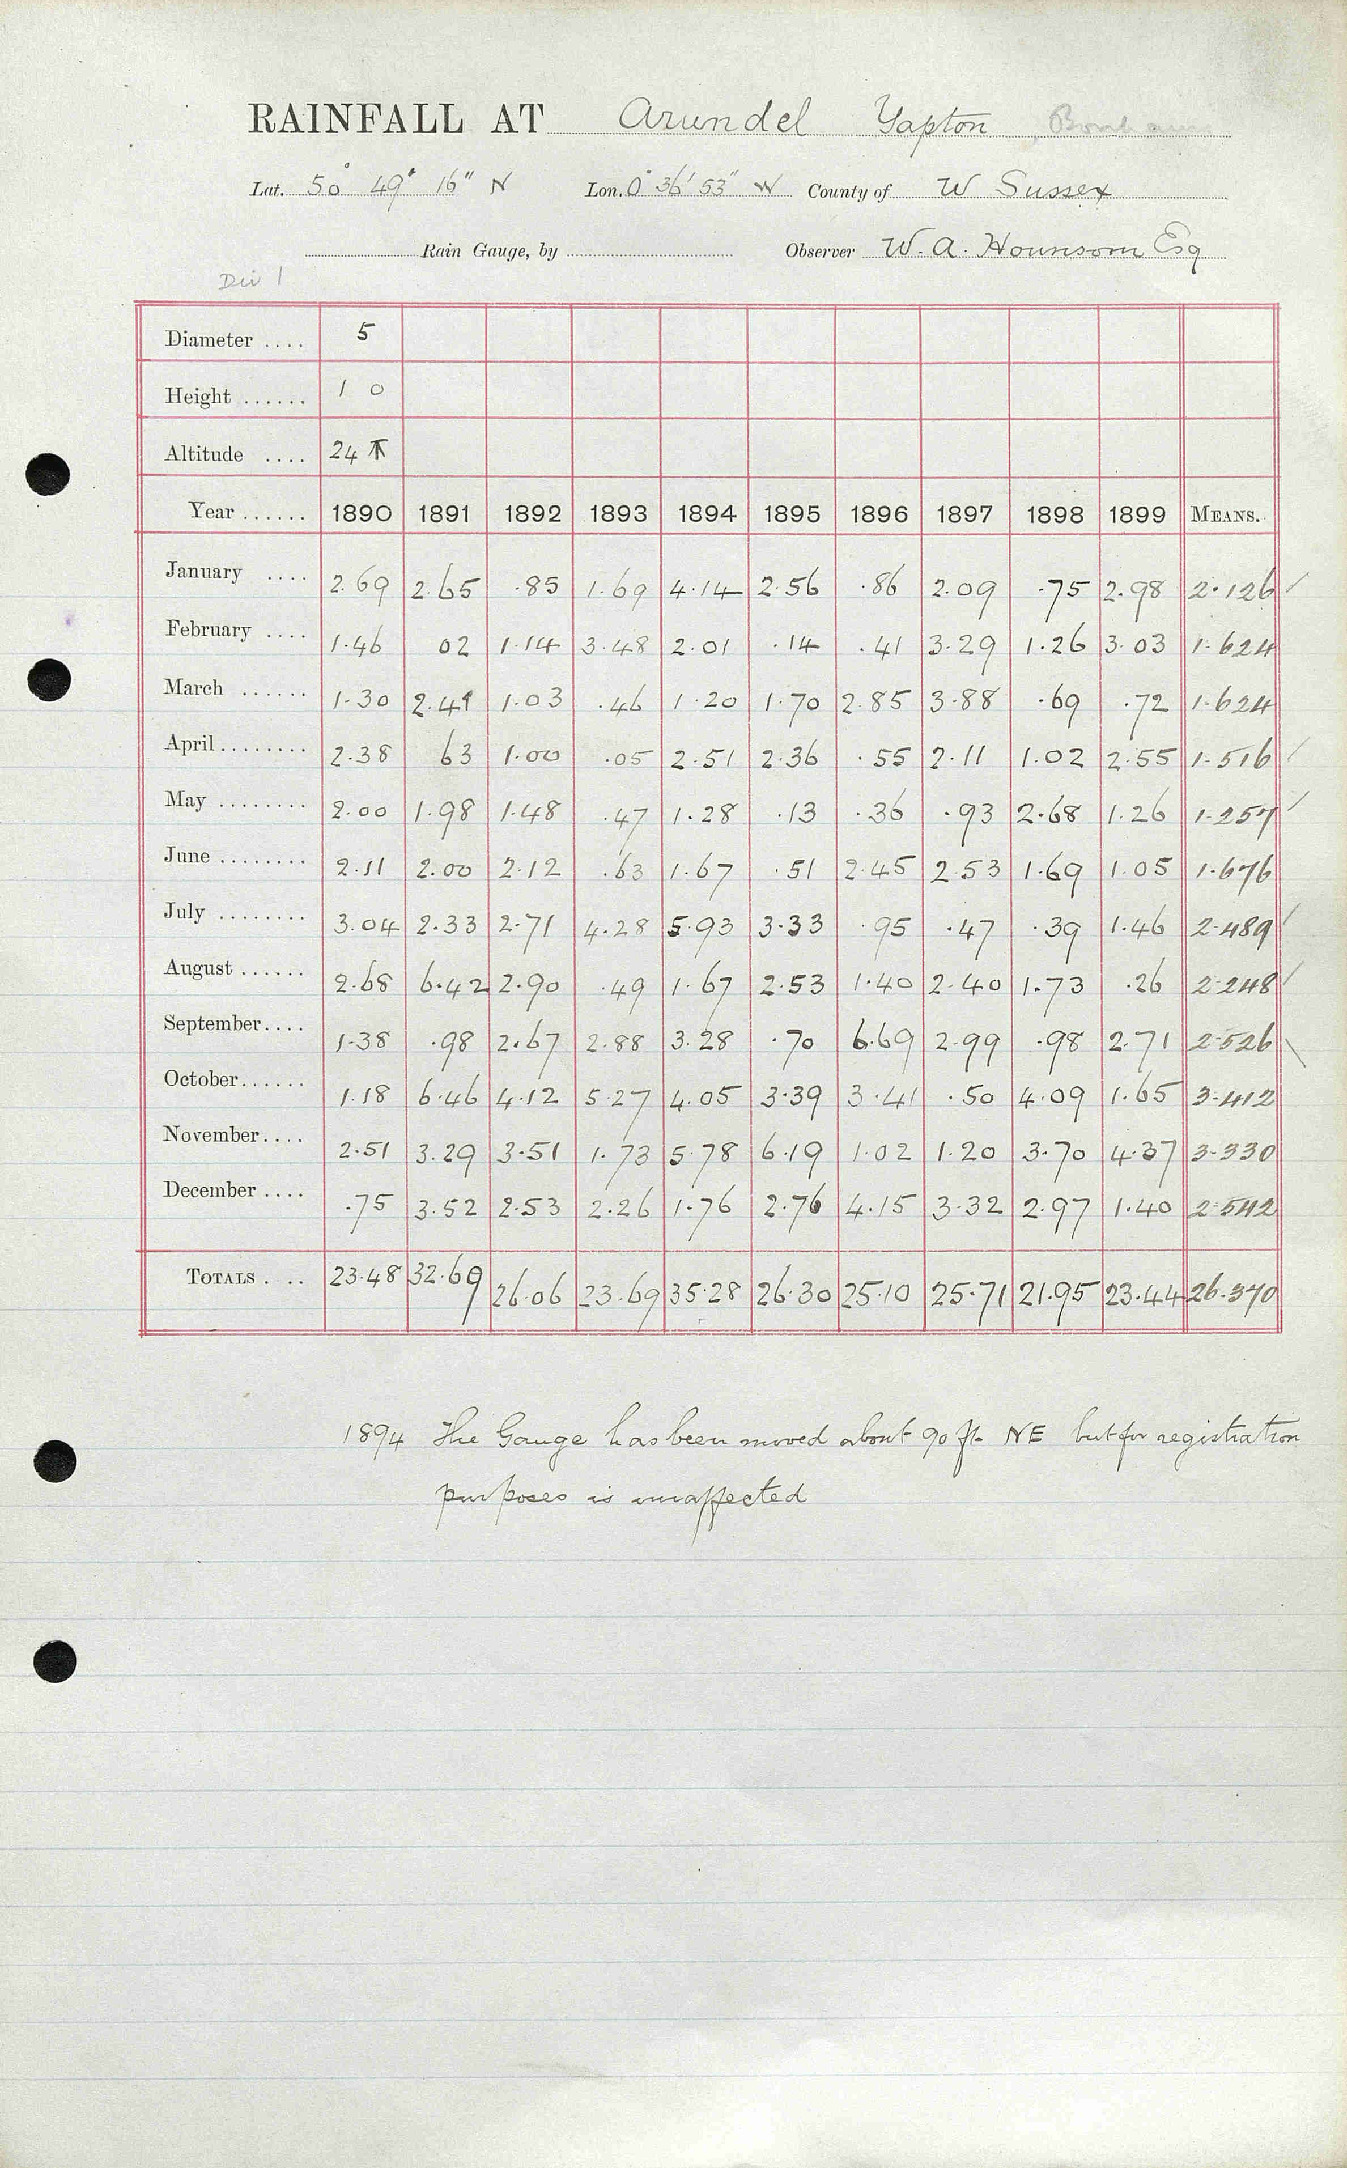 RAINFALL AT Arundel Yapton
Lat. 50° 49' 16" N Lon. 0° 36' 53" W County of W Sussex
Rain Gauge, by Observer W. A. Hounsom Esq
Div 1
Diameter .... 5
Height ...... 1 0
Altitude .... 24 T
Year ...... 1890 1891 1892 1893 1894 1895 1896 1897 1898 1899 MEANS.
January .... 2.69 2.65 .85 1.69 4.14 2.56 .86 2.09 .75 2.98 2.126
February .... 1.46 02 1.14 3.48 2.01 .14 .41 3.29 1.26 3.03 1.624
March ...... 1.30 2.41 1.03 .46 1.20 1.70 2.85 3.88 .69 .72 1.624
April ........ 2.38 63 1.00 .05 2.51 2.36 .55 2.11 1.02 2.55 1.516
May ........ 2.00 1.98 1.48 .47 1.28 .13 .36 .93 2.68 1.26 1.257
June ........ 2.11 2.00 2.12 .63 1.67 .51 2.45 2.53 1.69 1.05 1.676
July ........ 3.04 2.33 2.71 4.28 5.93 3.33 .95 .47 .39 1.46 2.489
August ...... 2.68 6.42 2.90 .49 1.67 2.53 1.40 2.40 1.73 .26 2.248
September.... 1.38 .98 2.67 2.88 3.28 .70 6.69 2.99 .98 2.71 2.526
October...... 1.18 6.46 4.12 5.27 4.05 3.39 3.41 .50 4.09 1.65 3.412
November.... 2.51 3.29 3.51 1.73 5.78 6.19 1.02 1.20 3.70 4.37 3.330
December .... .75 3.52 2.53 2.26 1.76 2.76 4.15 3.32 2.97 1.40 2.542
TOTALS . .. 23.48 32.69 26.06 23.69 35.28 26.30 25.10 25.71 21.95 23.44 26.370
1894 The Gauge has been moved about 90 ft. NE but for registration
purposes is unaffected